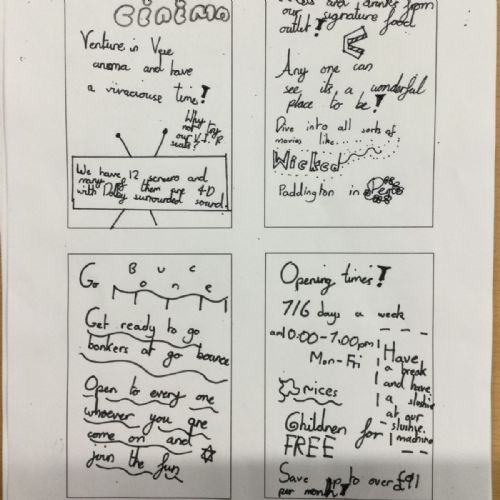 cinima
Venture in Vue
cinima and have
a vivaciouse time!
Why
not try
our V.I.P
seats?
We have 12 screens and
many of them are 4D
with Dolby surrounded sound.
and drinks from
our signature food
outlet!
Any one can
see its a wonderful
place to be!
Dive into all sorts of
movies like...
Wicked
Paddington in Peru
Go Bounce
Get ready to go
bonkers at go bounce
Open to every one
whoever you are
come on and
join the fun
Opening times!
7/6 days a week
10:00-7:00pm
Mon-Fri
Have
a break
and have
a slushie
at our
slushie
machine
Prices
Children for
FREE
Save up to over £91
per month!